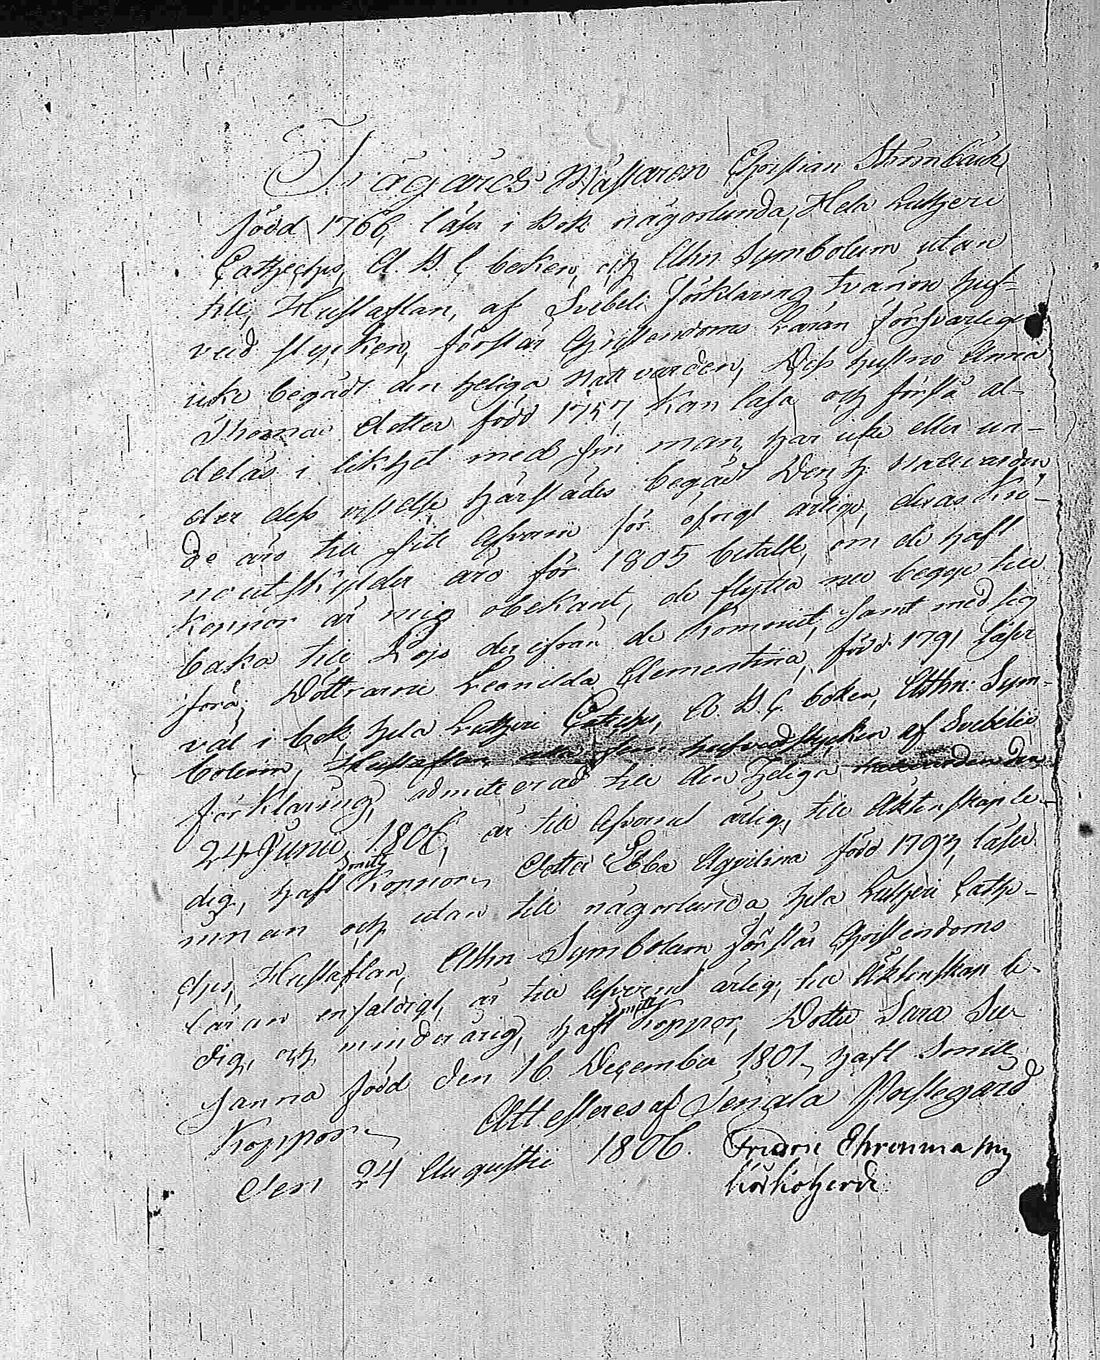 Trägårds Mästaren Christian Strömbäck
född 1766, läser i Bok någorlunda, Hela Lutheri
Catheches, A. B. C boken, och Athn. Symbolum utan
till, Hustaflan, af Svebeli Förklaring tvänne huf-
vud stycken, förstår Christendoms Läran försvarligt
icke begådt den heliga Nattvarden, Dess hustro Anna
Thomas dotter född 1757, Kan läsa och förstå al-
deles i likhet med sin man, har icke eller un-
der dess vistelse härstädes begådt Den H. Nattvarden
De äro till sitt lefverne för öfrigt ärlige, deras Kro-
noutskylder äro för 1805 betalte, om de haft
Koppor är mig obekant, de flytta nu begge till
baka till Lojo derifrån de kommit, samt med sig
föra, Döttrarne Leonilda Clementina, född 1791 läser
väl i bok, hela Lutheri Cateches, A. B. C boken, Athn: Sym-
bolum, Hustaflan hufvudstycken af Svebelii
förklaring, admitterad till den heliga Nattvarden den
24 Junii 1806, är till lefverne ärlig, till Äktenskap le-
dig, haft Smitt Koppor, dotter Ebba Aqvilina född 1793, läser
innan och utan till någorlunda, hela Lutheri Cathe-
ches, Hustaflan, Athn Symbolum, förstår Christendoms
läran enfaldigt, är till lefverne ärlig, till Äktenskap le-
dig, och minderårig, haft Smitt Koppor, Dotter Sara Su-
sanna född den 16 December 1801, haft Smitt
Koppor. Attesteres af Tenala Prestegård
den 24 Augustii 1806. Fredric Ehrenmalm
Kÿrkioherde